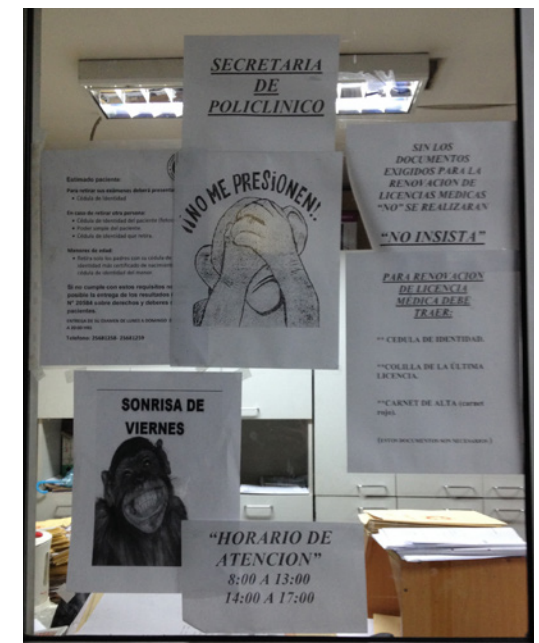 SECRETARIA
DE
POLICLINICO
Estimado paciente:
Para retirar sus exámenes deberá presentar
• Cédula de identidad
En caso de retirar otra persona:
• Cédula de identidad del paciente
• Poder simple del paciente.
• Cédula de identidad que retira.
Menores de edad:
• Retira solo los padres con su cédula de
identidad más certificado de nacimiento
cédula de identidad del menor.
Si no cumple con estos requisitos no
posible la entrega de los resultados
N° 20584 sobre derechos y deberes
pacientes.
¡¡NO ME PRESiONEN!!
SIN LOS
DOCUMENTOS
EXIGIDOS PARA LA
RENOVACION DE
LICENCIAS MEDICAS
"NO" SE REALIZARAN
"NO INSISTA"
PARA RENOVACION
DE LICENCIA
MÉDICA DEBE
TRAER:
** CEDULA DE IDENTIDAD.
**COLILLA DE LA ÚLTIMA
LICENCIA.
**CARNET DE ALTA (carnet
rojo).
(ESTOS DOCUMENTOS SON NECESARIOS )
SONRISA DE
VIERNES
"HORARIO DE
ATENCION"
8:00 A 13:00
14:00 A 17:00